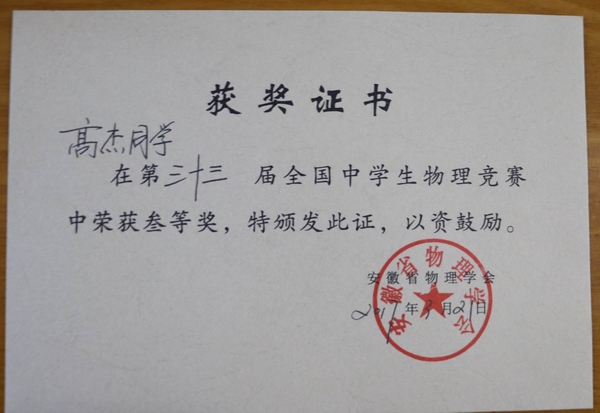 获奖证书
高杰同学
在第三十三届全国中学生物理竞赛
中荣获叁等奖，特颁发此证，以资鼓励。
安徽省物理学会
年 月21日
安徽省物理学会